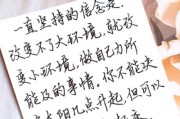 一直坚持的信念是，
改变不了大环境，就改
变小环境，做自己力所
能及的事情。你不能决
定太阳几点升起，但可以